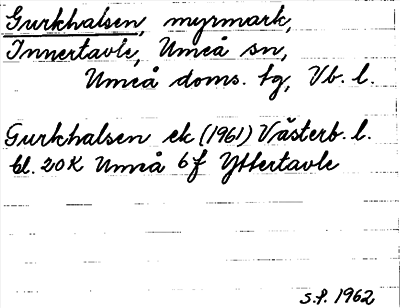 Gurkhalsen, myrmark,
Innertavle, Umeå sn,
Umeå doms. tg, Vb. l.
Gurkhalsen ek (1961) Västerb. l.
bl. 20K Umeå 6f Yttertavle
s.f. 1962